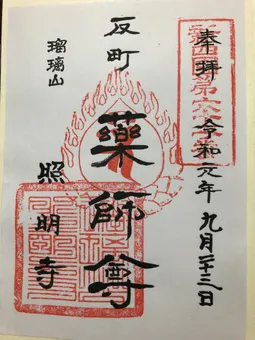 奉拝
令和元年九月二十三日
反町
藥師尊
瑠璃山
照明寺